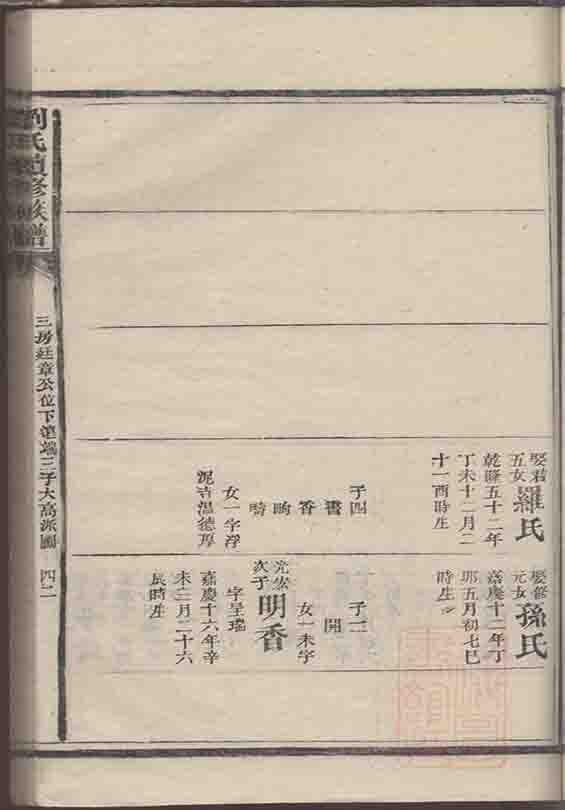 娶君
五女
羅氏
乾隆五十二年
丁未十二月二
十一酉時生
子四
書
香
時
女一字浮
泥寺溫德厚
元女
孫氏
嘉慶十二年丁
卯五月初七巳
時生
子二
開
女一未字
次子
明香
字呈瑞
嘉慶十六年辛
未二月二十六
辰時生
劉氏 修族譜
三房廷章公位下第端三子大高派圖
四二